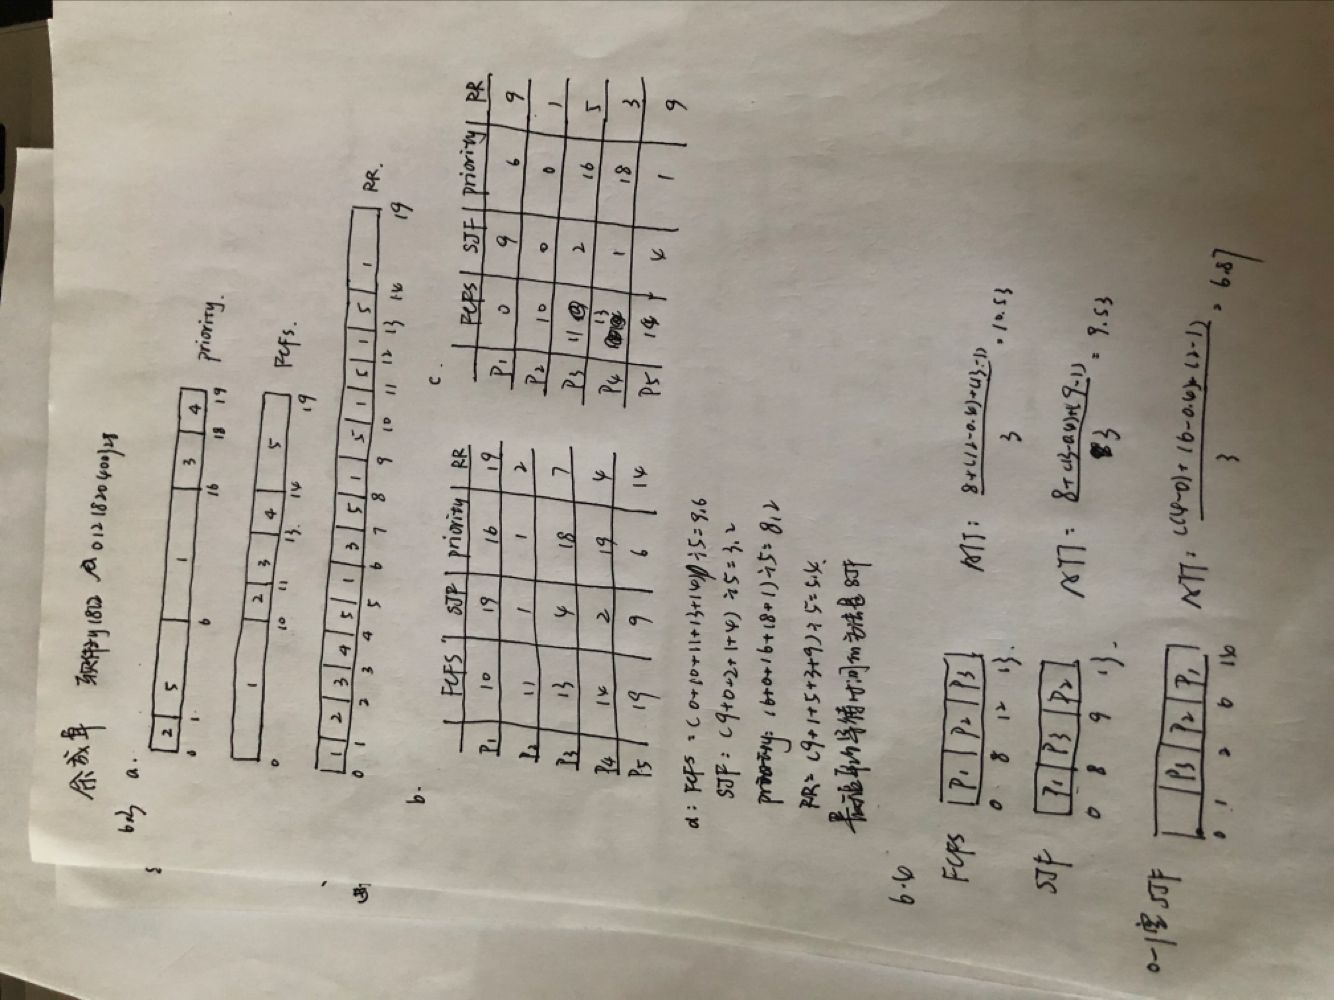 余成阜 软件zy1802 0121820400328
6.3 a.
2 5 1 3 4
0 1 6 16 18 19 priority.
1 2 3 4 5
0 10 11 13. 14 19 FCFS.
1 2 3 4 5 1 3 5 1 5 1 5 1 5 1
0 1 2 3 4 5 6 7 8 9 10 11 12 13 14 19 RR.
b.
FCFS SJF priority RR
P1 10 19 16 19
P2 11 1 1 2
P3 13 4 18 7
P4 14 2 19 4
P5 19 9 6 14
c.
FCFS SJF priority RR
P1 0 9 6 9
P2 10 0 0 1
P3 11 2 16 5
P4 13 1 18 3
P5 14 4 1 9
d: FCFS = (0+10+11+13+14)÷5=9.6
SJF: (9+0+2+1+4)÷5=3.2
priority: (6+0+16+18+1)÷5=8.2
RR= (9+1+5+3+9)÷5=5.4.
最短平均等待时间的方法是SJF
6.4
FCFS P1 P2 P3 ATT: 8+(12-0.4)+(13-1)
0 8 12 13. 3 =10.53
SJF P1 P3 P2 ATT: 8+(13-0.4)+(9-1)
0 8 9 13. 3 = 9.53
0-1空SJF P3 P2 P1 ATT: ((14-0)+(6-0.4)+(2-1)
0 1 2 6 14 3 = 6.87